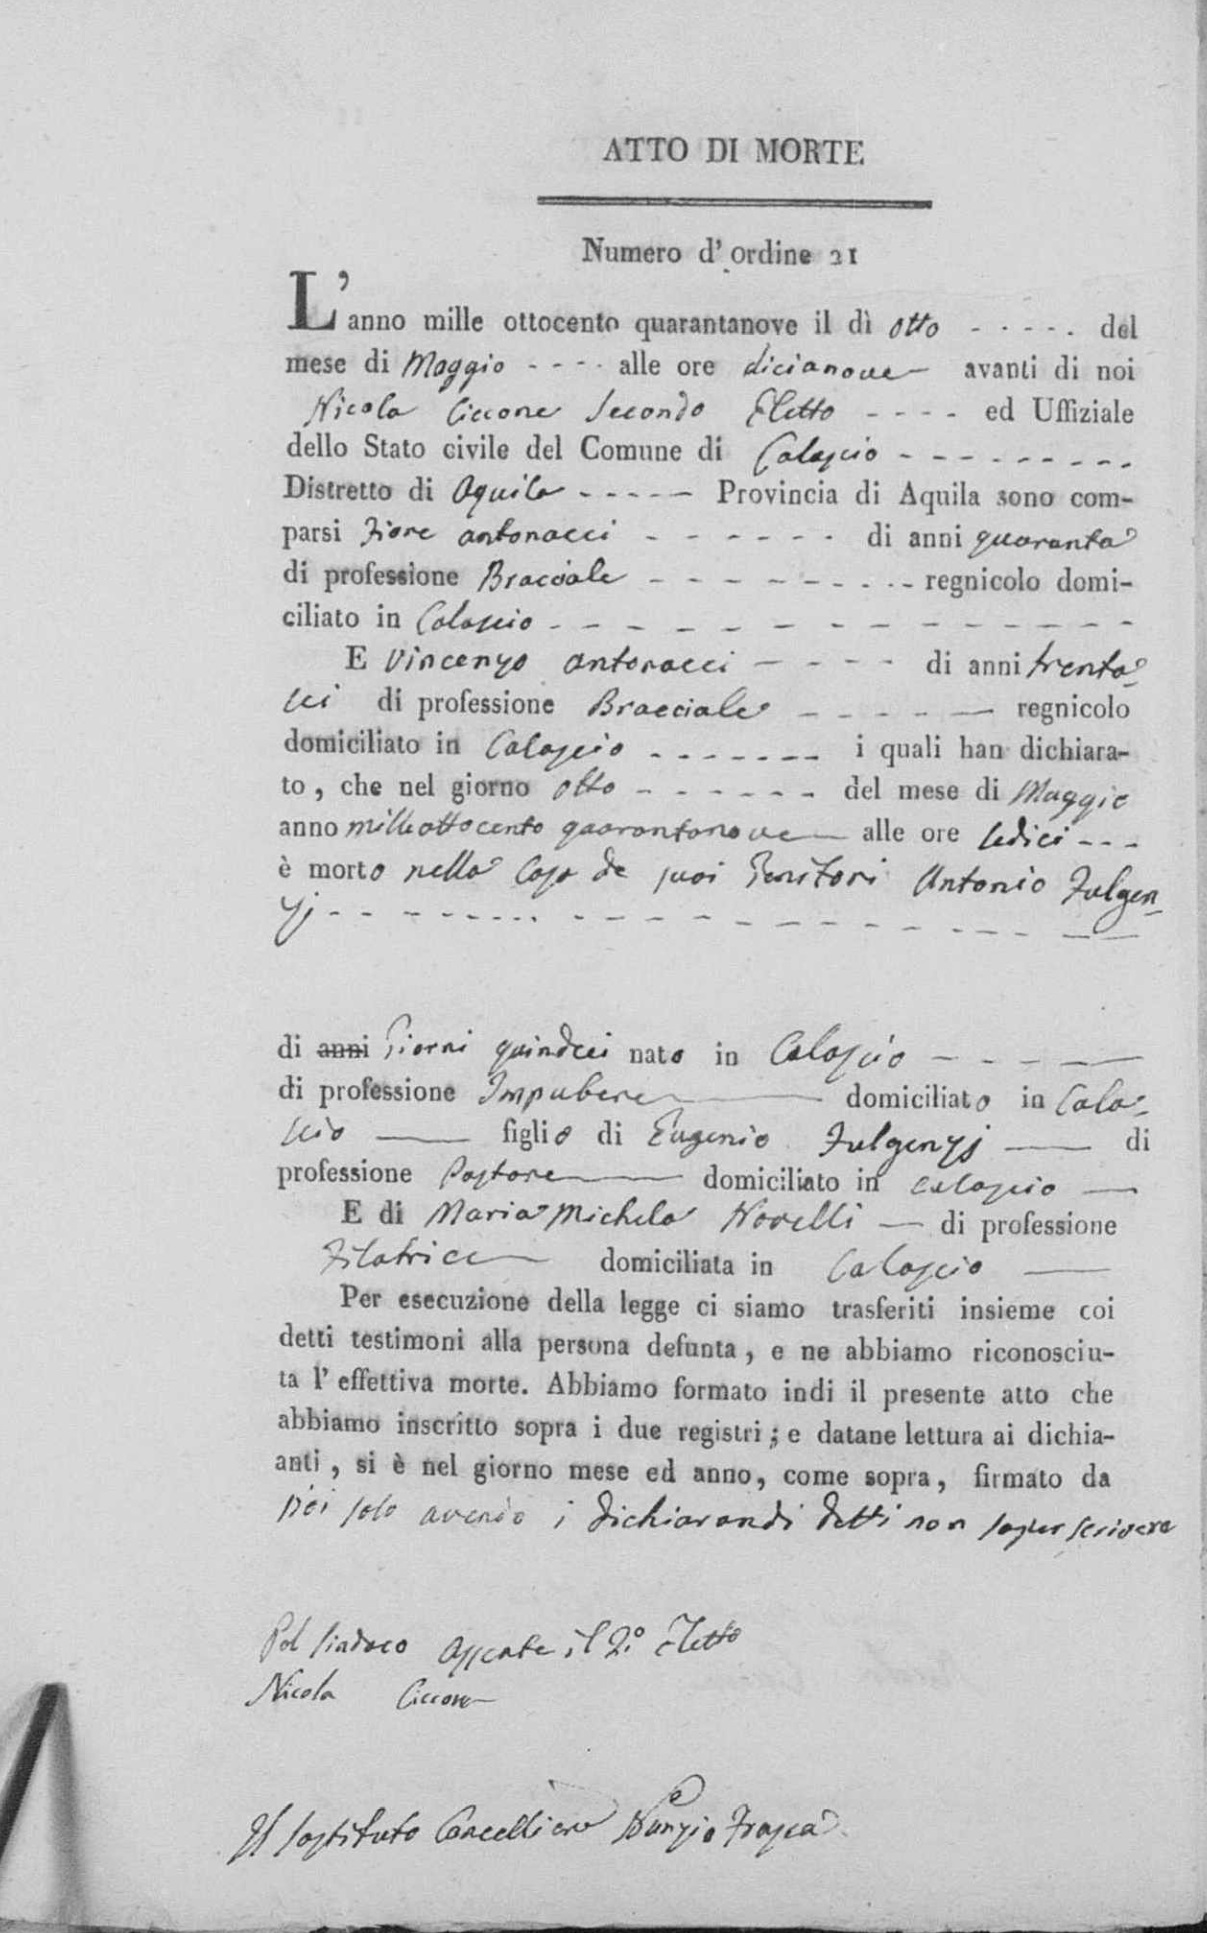 ATTO DI MORTE
Numero d' ordine 21
L'anno mille ottocento quarantanove il dì otto - - - - - del
mese di Maggio - - - - alle ore dicianove avanti di noi
Nicola Ciccone Secondo Eletto - - - - ed Uffiziale
dello Stato civile del Comune di Calascio - - - - - - - - -
Distretto di Aquila - - - - - Provincia di Aquila sono com-
parsi Fiore Antonacci - - - - - - di anni quaranta
di professione Bracciale - - - - - - - - - regnicolo domi-
ciliato in Calascio - - - - - - - - - - - - - - -
E Vincenzo Antonacci - - - - di anni trenta-
sei di professione Bracciale - - - - - regnicolo
domiciliato in Calascio - - - - - - - i quali han dichiara-
to , che nel giorno otto - - - - - - del mese di Maggio
anno milleottocento quarantanove alle ore sedici - - -
è morto nella Casa de suoi Genitori Antonio Fulgen-
zj - - - - - - - - - - - - - - - - - -
di anni Giorni quindici nato in Calascio - - - - -
di professione Impubere domiciliato in Cala-
scio — figlio di Eugenio Fulgenzj — di
professione Pastore domiciliato in Calascio —
E di Maria Michela Novelli — di professione
Filatrice domiciliata in Calascio —
Per esecuzione della legge ci siamo trasferiti insieme coi
detti testimoni alla persona defunta , e ne abbiamo riconosciu-
ta l' effettiva morte. Abbiamo formato indi il presente atto che
abbiamo inscritto sopra i due registri ; e datane lettura ai dichia-
anti , si è nel giorno mese ed anno, come sopra, firmato da
Noi solo avendo i dichiarandi detti non saper scrivere
Pel Sindaco Assente il 2.° Eletto
Nicola Ciccone
Il Sostituto Cancelliere Nunzio Frasca